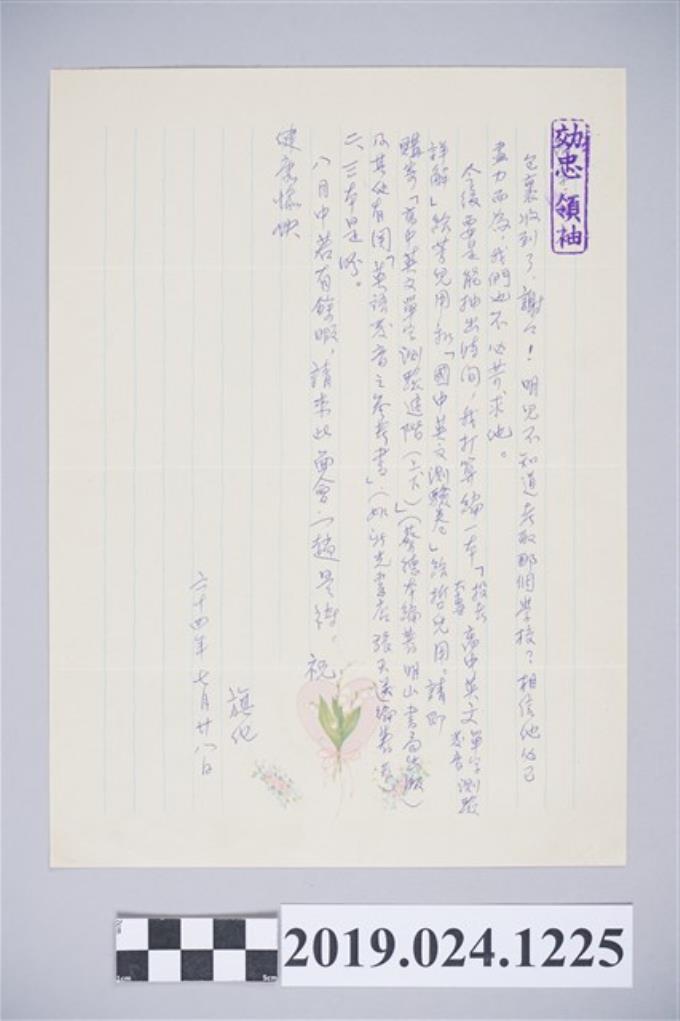 効忠領袖
包裹收到了，謝々！明兒不知道考取那個學校？相信他必已
盡力而為，我們也不必苛求他。
今後要是能抽出時間，我打算編一本「投考大專高中英文單字測驗
詳解」給芳兒用和「國中英文測驗卷」給哲兒用。請即
購寄「高中英文單字測驗進階（上下）」（蔡德本編著明山書局出版）
及其他有関「英語發音之參考書」（如新光書店張天送編著）
二、三本是盼。
八月中若有餘暇，請來此面會一趟是禱。祝
健康愉快
旗化
六十四年七月廿八日
2019.024.1225
1cm
5cm